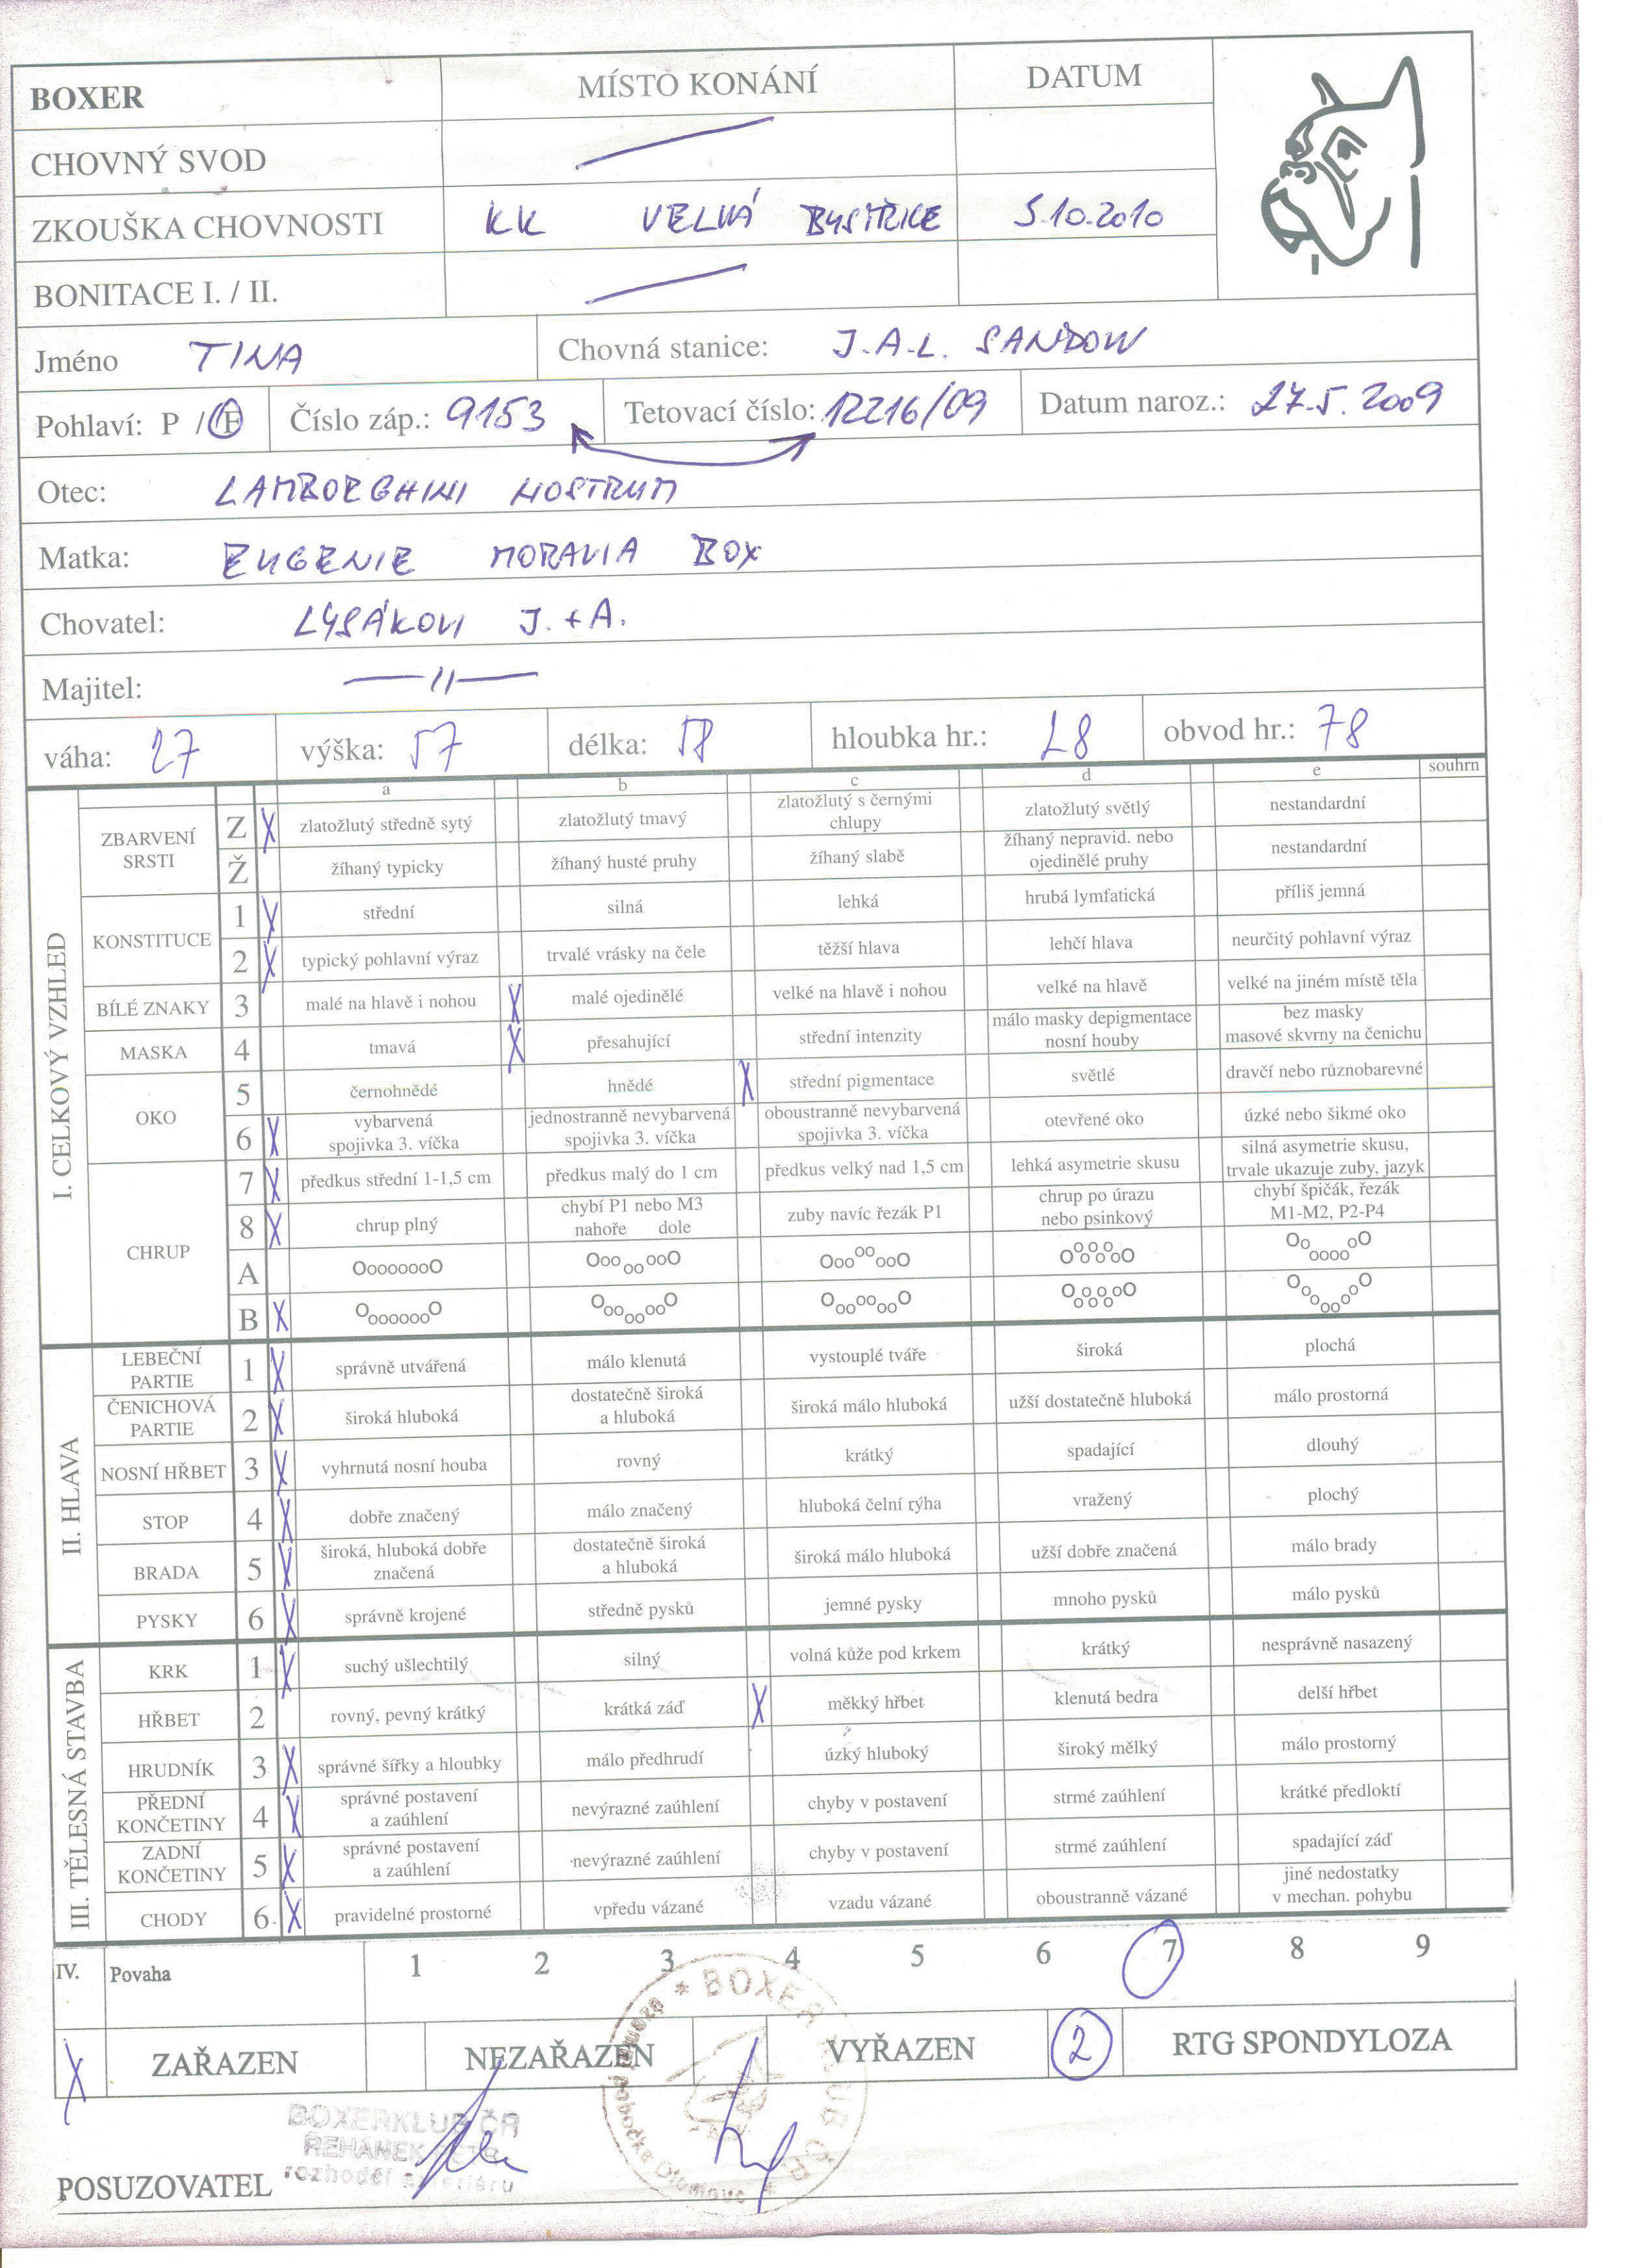 BOXER MÍSTO KONÁNÍ DATUM
CHOVNÝ SVOD
ZKOUŠKA CHOVNOSTI KK VELKÁ BYSTŘICE 5.10.2010
BONITACE I. / II.
Jméno TINA Chovná stanice: J.A.L. SANDOW
Pohlaví: P / F Číslo záp.: 9153 Tetovací číslo: 12216/09 Datum naroz.: 27.5.2009
Otec: LAMBORGHINI NOSTRUM
Matka: EUGENIE MORAVIA BOX
Chovatel: LYSÁKOVI J.+A.
Majitel: —11—
váha: 27 výška: 57 délka: 58 hloubka hr.: 28 obvod hr.: 78
a b c d e souhrn
I. CELKOVÝ VZHLED
ZBARVENÍ SRSTI Z X zlatožlutý středně sytý zlatožlutý tmavý zlatožlutý s černými chlupy zlatožlutý světlý nestandardní
Ž žíhaný typicky žíhaný husté pruhy žíhaný slabě žíhaný nepravid. nebo ojedinělé pruhy nestandardní
KONSTITUCE 1 X střední silná lehká hrubá lymfatická příliš jemná
2 X typický pohlavní výraz trvalé vrásky na čele těžší hlava lehčí hlava neurčitý pohlavní výraz
BÍLÉ ZNAKY 3 malé na hlavě i nohou X malé ojedinělé velké na hlavě i nohou velké na hlavě velké na jiném místě těla
MASKA 4 tmavá X přesahující střední intenzity málo masky depigmentace nosní houby bez masky masové skvrny na čenichu
OKO 5 černohnědé hnědé X střední pigmentace světlé dravčí nebo různobarevné
6 X vybarvená spojivka 3. víčka jednostranně nevybarvená spojivka 3. víčka oboustranně nevybarvená spojivka 3. víčka otevřené oko úzké nebo šikmé oko
CHRUP 7 X předkus střední 1-1,5 cm předkus malý do 1 cm předkus velký nad 1,5 cm lehká asymetrie skusu silná asymetrie skusu, trvale ukazuje zuby, jazyk
8 X chrup plný chybí P1 nebo M3 nahoře dole zuby navíc řezák P1 chrup po úrazu nebo psinkový chybí špičák, řezák M1-M2, P2-P4
A OooooooO OooooooO OooooooO OooooooO OooooooO
B X OooooooO OooooooO OooooooO OooooooO OooooooO
II. HLAVA
LEBEČNÍ PARTIE 1 X správně utvářená málo klenutá vystouplé tváře široká plochá
ČENICHOVÁ PARTIE 2 X široká hluboká dostatečně široká a hluboká široká málo hluboká užší dostatečně hluboká málo prostorná
NOSNÍ HŘBET 3 X vyhrnutá nosní houba rovný krátký spadající dlouhý
STOP 4 X dobře značený málo značený hluboká čelní rýha vražený plochý
BRADA 5 X široká, hluboká dobře značená dostatečně široká a hluboká široká málo hluboká užší dobře značená málo brady
PYSKY 6 X správně krojené středně pysků jemné pysky mnoho pysků málo pysků
III. TĚLESNÁ STAVBA
KRK 1 X suchý ušlechtilý silný volná kůže pod krkem krátký nesprávně nasazený
HŘBET 2 rovný, pevný krátký krátká záď X měkký hřbet klenutá bedra delší hřbet
HRUDNÍK 3 X správné šířky a hloubky málo předhrudí úzký hluboký široký mělký málo prostorný
PŘEDNÍ KONČETINY 4 X správné postavení a zaúhlení nevýrazné zaúhlení chyby v postavení strmé zaúhlení krátké předloktí
ZADNÍ KONČETINY 5 X správné postavení a zaúhlení nevýrazné zaúhlení chyby v postavení strmé zaúhlení spadající záď
CHODY 6. X pravidelné prostorné vpředu vázané vzadu vázané oboustranně vázané jiné nedostatky v mechan. pohybu
IV. Povaha 1 2 3 4 5 6 7 8 9
X ZAŘAZEN NEZAŘAZEN VYŘAZEN 2 RTG SPONDYLOZA
BOXERKLUB ČR
ŘEHANEK PETR
rozhodčí exteriéru
BOXER KLUB ČR
pobočka Olomouc
POSUZOVATEL